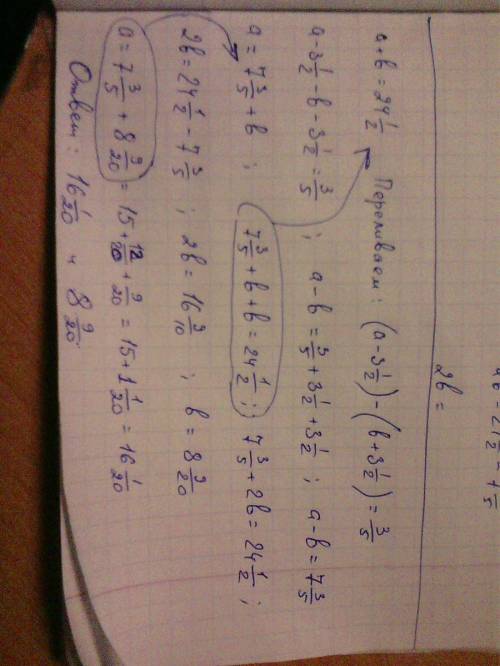 ab = 24 1/2 - 7 3/5
2b =
a+b = 24 1/2 Переливаем: (a-3 1/2)-(b+3 1/2) = 3/5
a-3 1/2-b-3 1/2 = 3/5 ; a-b = 3/5+3 1/2+3 1/2 ; a-b = 7 3/5
a = 7 3/5+b ; 7 3/5+b+b = 24 1/2 ; 7 3/5+2b = 24 1/2 ;
2b = 24 1/2 - 7 3/5 ; 2b = 16 9/10 ; b = 8 9/20
a = 7 3/5 + 8 9/20 = 15 + 12/20 + 9/20 = 15+1 1/20 = 16 1/20
Ответ: 16 1/20 и 8 9/20.